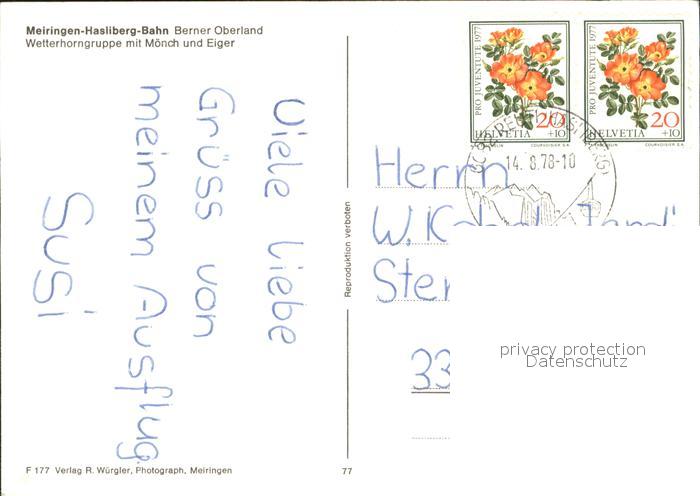 Meiringen-Hasliberg-Bahn Berner Oberland
Wetterhorngruppe mit Mönch und Eiger
Viele liebe
Grüss von
meinem Ausflug
Susi
F 177 Verlag R. Würgler, Photograph, Meiringen
77
Reproduktion verboten
PRO JUVENTUTE 1977
20
+10
HELVETIA
COURVOISIER S.A.
PRO JUVENTUTE 1977
20
+10
HELVETIA
COURVOISIER S.A.
14.8.78-10
Herrn
W.
33
privacy protection
Datenschutz